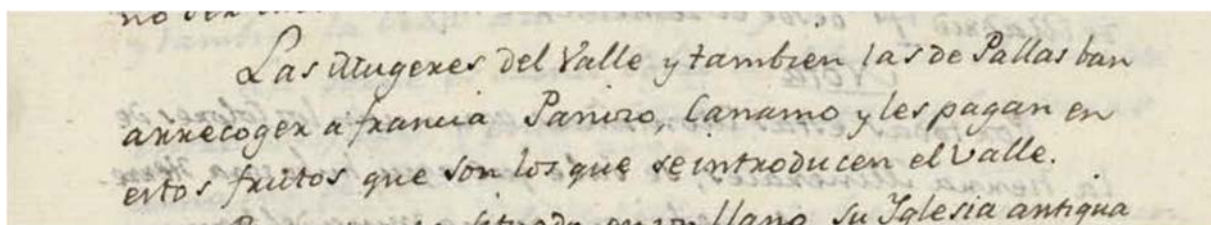 no
Las Mugeres del Valle y tambien las de Pallas ban
arrecoger a francia Panizo, Canamo y les pagan en
estos frutos que son los que se introducen el Valle.
situada en un llano su Yglesia antigua